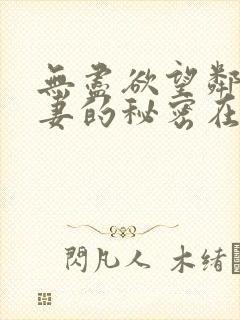 無盡欲望鄰
妻的秘密在
閃凡人 木緒